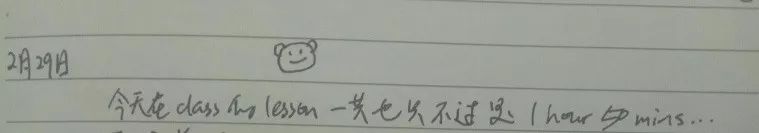 2月29日
今天在 class 的 lesson 一共也只不过是 1 hour 5 mins...